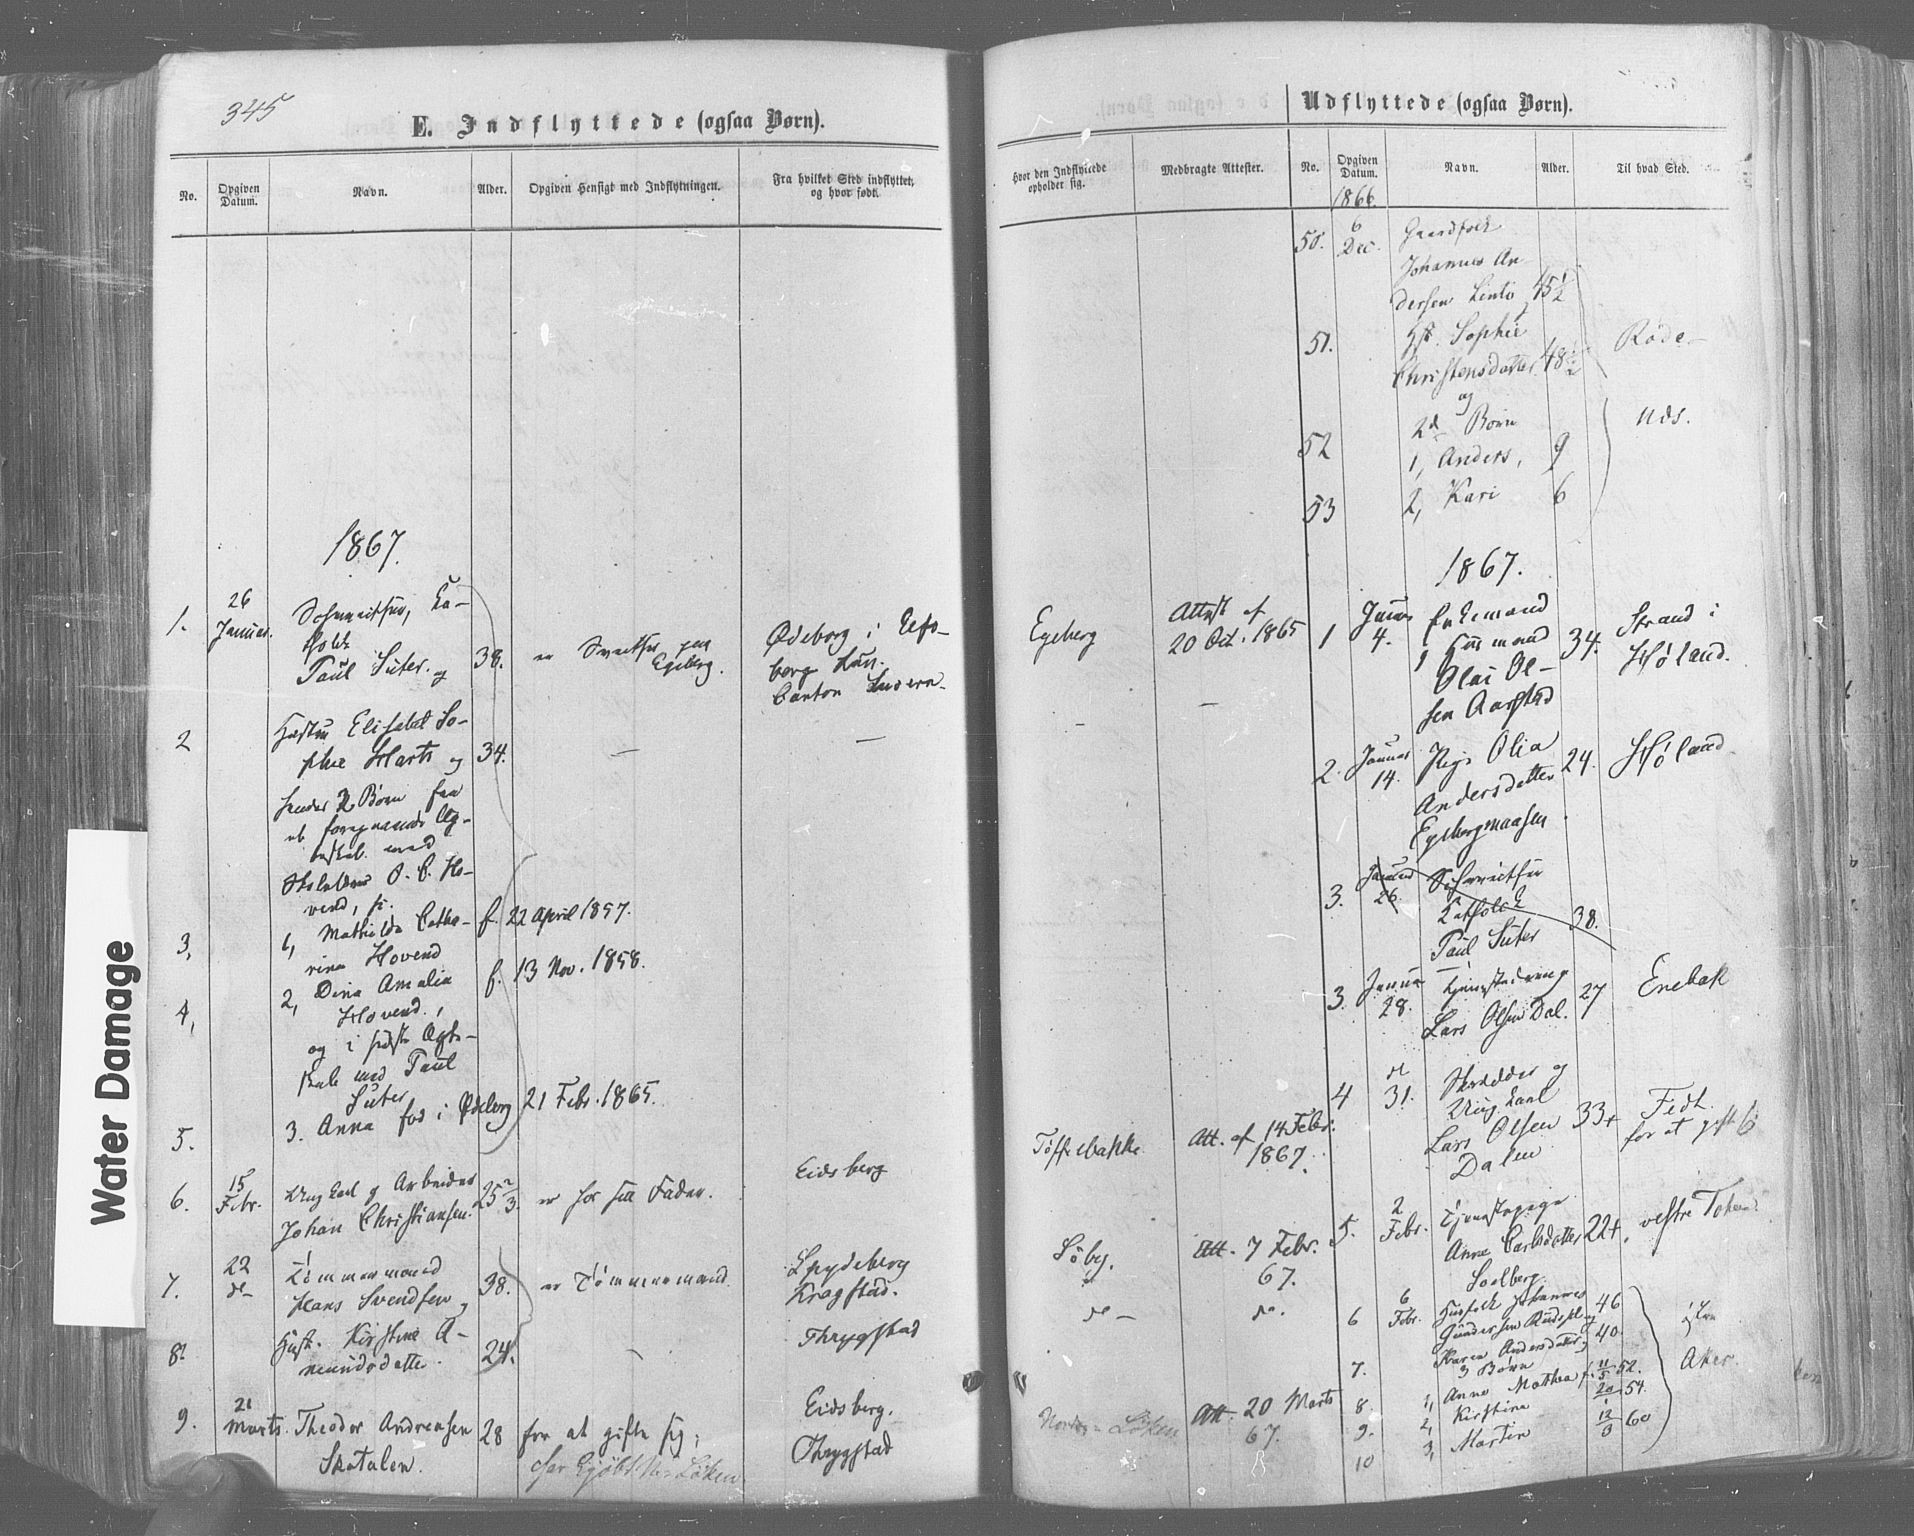 345
E. Indflyttede (ogsaa Børn).
No.
Opgiven Datum.
Navn.
Alder.
Opgiven Hensigt med Indflytningen.
Fra hvilket Sted indflyttet, og hvor født.
1867.
1.
26 Januar.
Schweitser, Ka-
tholik
Paul Suter. og
38.
er Sveitser paa
Egeberg.
Ødeborg i
Canton
2
Hustru Elisabet So-
phie Harts og
34.
—
—
hendes 2 Børn
med
O. C. Ho-
vend,
3,
1, Mathilde Catha-
rina Hovend
f. 22 April 1857.
4,
2, Dina Amalia
Hovend,
f. 13 Nov. 1858.
og i sidste Ægte-
skab med Paul
Suter
5.
3. Anna fød i Ødeborg
21 Febr. 1865.
6.
15 Febr.
Ungkarl og Arbeider
Johan Christiansen.
25 2/3.
er hos sin Fader.
Eidsberg
7.
22
do
Tømmermand
Hans Svendsen og
38.
er Tømmermand.
Spydeberg
Kragstad.
8.
Hust. Kirstine A-
mundsdatter.
24.
—
Thrygstad
9.
21 Marts.
Theodor Andreasen
Skatalen.
28
for at gifte sig;
har Kjøbt Nor Løken
Eidsberg.
Thrygstad
Udflyttede (ogsaa Børn).
Hvor den Indflyttede opholder sig.
Medbragte Attester.
No.
Opgiven Datum.
Navn.
Alder.
Til hvad Sted.
1866.
50.
6 Dec.
Gaardfolk
Johannes An-
dersen Lintø
45 1/2
51.
Hst. Sophie
Christensdatter
48 1/2
Røde
og
2de Børn
52
1, Anders,
9
53
2, Kari
6
1867.
Egeberg
Attest af
20 Oct. 1865
1
Januar
4.
Enkemand
Husmand
Olai Ol-
sen Aarstad
34.
Strand i
Høland.
2.
Januar
14.
Pige Olia
Andersdatter
Egebergmaasen
24.
Høland
3.
Januar
26.
Schweitser
Katholik
Paul Suter
38.
3.
Januar
28.
Tjenestedreng
Lars Olsen Dal.
27
Enebak
4
do
31.
Skrædder og
Ungkarl
Lars Olsen
Dalen
33+
Fedt.
for at gifte sig
Toffebakke
Att. af 14 Febr.
1867.
5.
2
Febr.
Tjenestepige
Anne Carlsdatter
Solberg.
22+
vestre Toten
Søby.
Att. 7 Febr.
67.
do —
do.
6
6
Febr.
Husfolk Johannes
Gundersen
46
Vestre
Aker.
7.
Karen Andersdatter og
3 Børn
40.
8.
1, Anne Mathea
f. 11/5 52.
9.
2, Kirstine
20/1 54.
10
3, Martin
12/3 60
Nordre Løken
Att. 20 Marts
67.
Water Damage